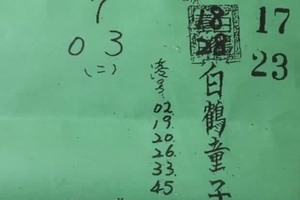 7
03
(二)
18
28
17
23
白鶴童子
凌号
02.
19.
20.
26.
33.
45